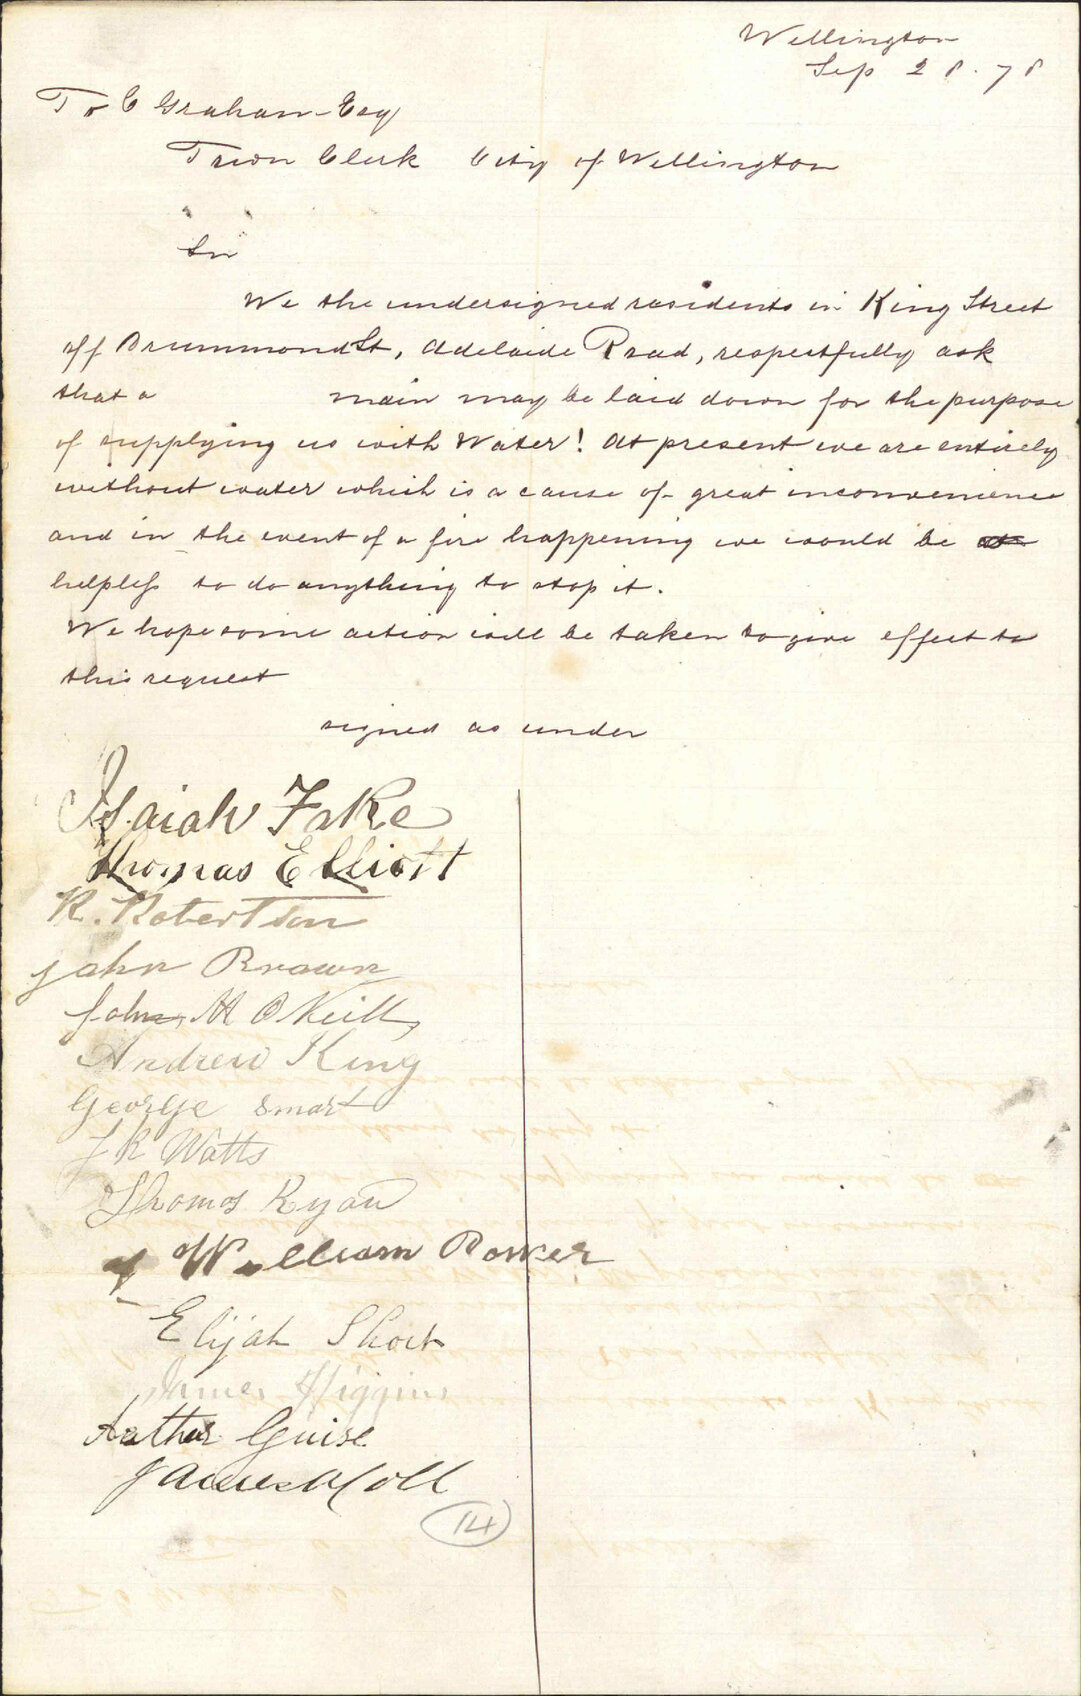 Wellington
Sep 28. 78
To C Graham Esq
Town Clerk City of Wellington
Sir
We the undersigned residents in King Street
off Drummond St, Adelaide Road, respectfully ask
that a main may be laid down for the purpose
of supplying us with Water! At present we are entirely
without water which is a cause of great inconvenience
and in the event of a fire happening we would be
helpless to do anything to stop it.
We hope some action will be taken to give effect to
this request
signed as under
Isaiah Fake
Thomas Elliott
R. Robertson
John Brown
John M O'Neill
Andrew King
George Smart
J R Watts
Thomas Ryan
William Bowker
Elijah Short
James Higgins
Arthur Guise
James
14